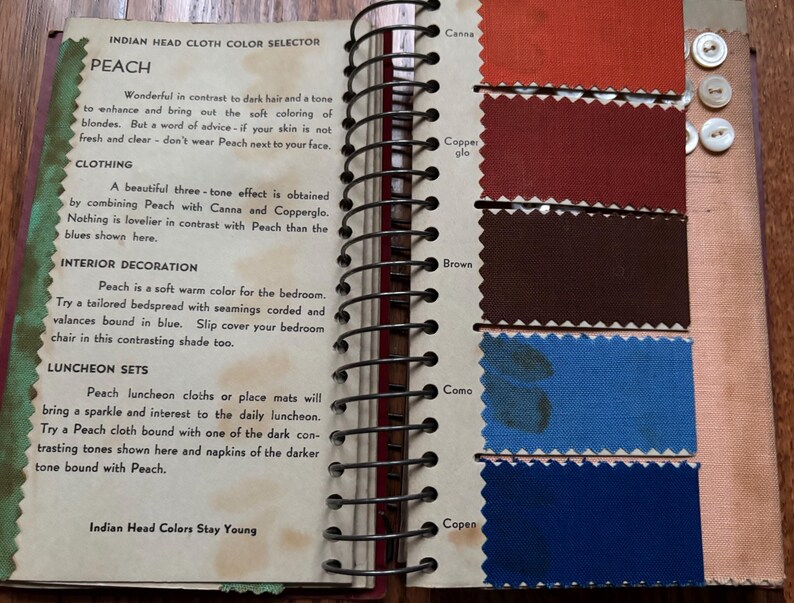 INDIAN HEAD CLOTH COLOR SELECTOR
PEACH
Wonderful in contrast to dark hair and a tone
to enhance and bring out the soft coloring of
blondes. But a word of advice - if your skin is not
fresh and clear - don't wear Peach next to your face.
CLOTHING
A beautiful three - tone effect is obtained
by combining Peach with Canna and Copperglo.
Nothing is lovelier in contrast with Peach than the
blues shown here.
INTERIOR DECORATION
Peach is a soft warm color for the bedroom.
Try a tailored bedspread with seamings corded and
valances bound in blue. Slip cover your bedroom
chair in this contrasting shade too.
LUNCHEON SETS
Peach luncheon cloths or place mats will
bring a sparkle and interest to the daily luncheon.
Try a Peach cloth bound with one of the dark con-
trasting tones shown here and napkins of the darker
tone bound with Peach.
Indian Head Colors Stay Young
Canna
Copper
glo
Brown
Como
Copen